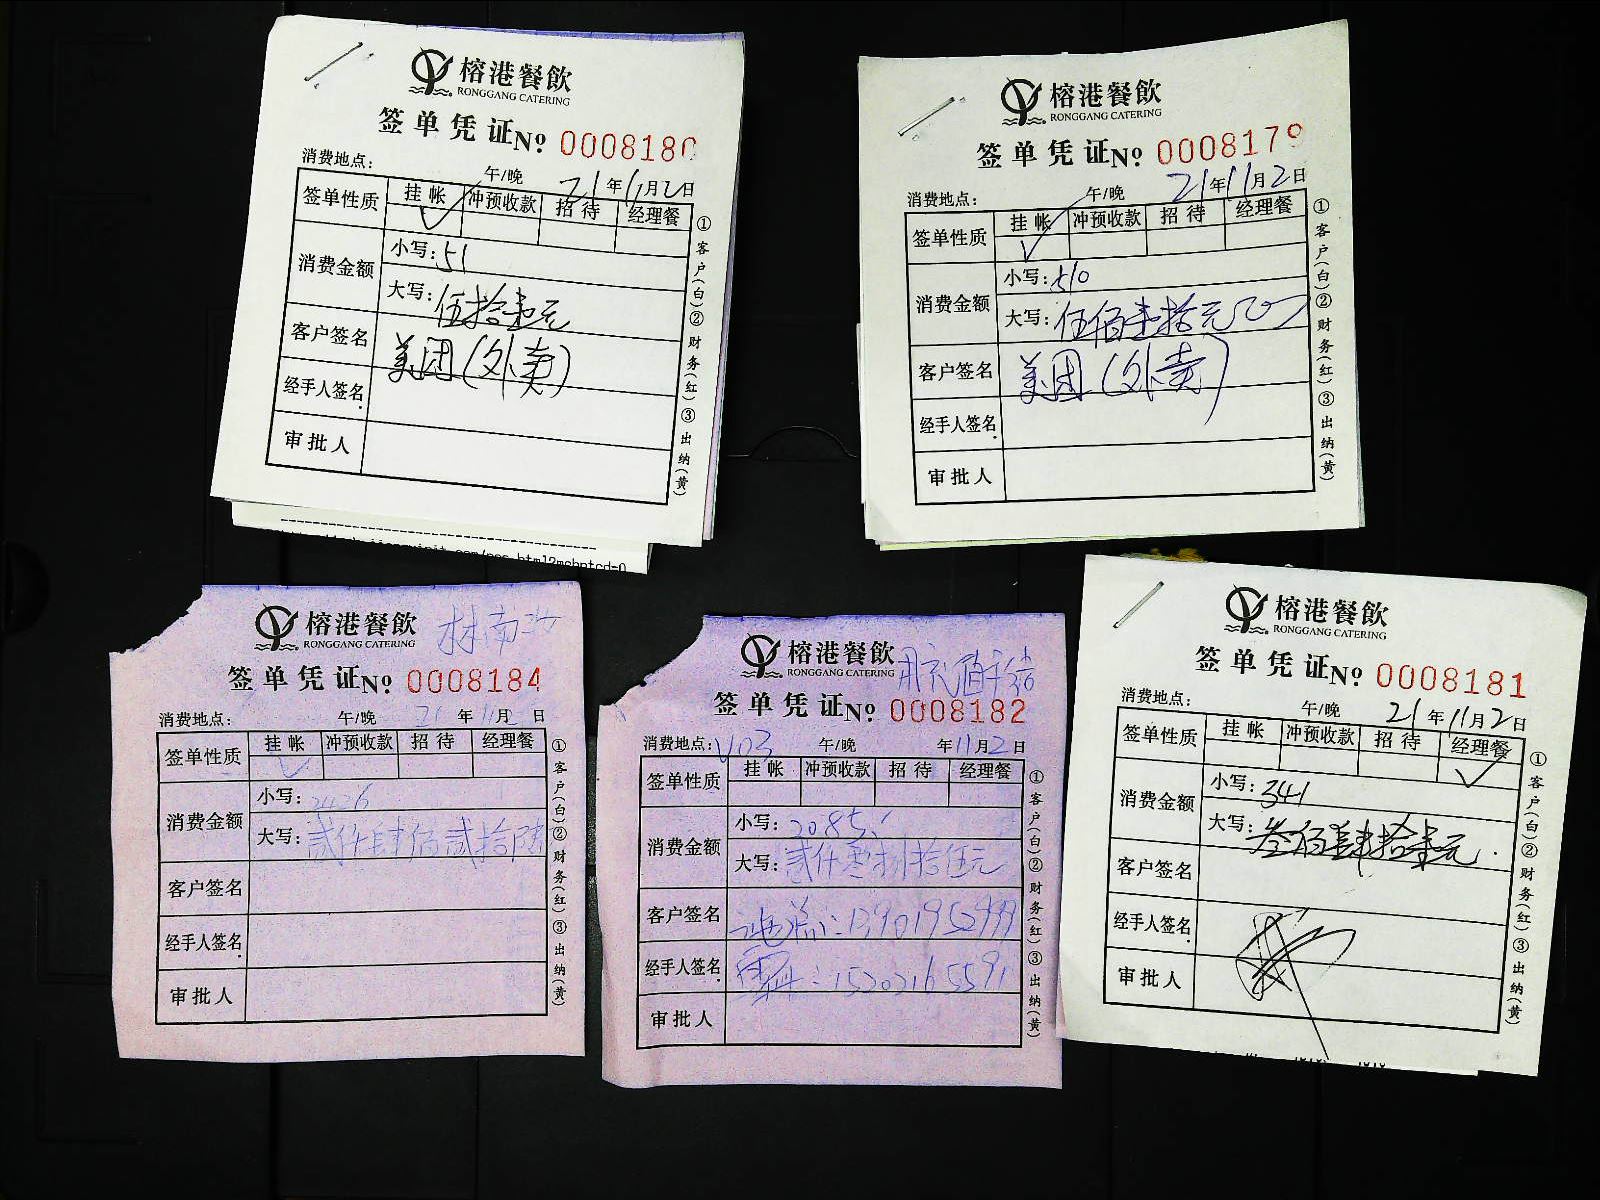 榕港餐飲
RONGGANG CATERING
签单凭证No 0008180
消费地点: 午/晚 21年11月2日
签单性质 挂帐 冲预收款 招待 经理餐
消费金额 小写:51
大写:伍拾壹元
客户签名 美团(外卖)
经手人签名
审批人
①客户(白)②财务(红)③出纳(黄)
榕港餐飲
RONGGANG CATERING
签单凭证No 0008179
消费地点: 午/晚 21年11月2日
签单性质 挂帐 冲预收款 招待 经理餐
消费金额 小写:510
大写:伍佰壹拾元
客户签名 美团(外卖)
经手人签名
审批人
①客户(白)②财务(红)③出纳(黄)
榕港餐飲
RONGGANG CATERING
签单凭证No 0008184
消费地点: 午/晚 21年11月2日
签单性质 挂帐 冲预收款 招待 经理餐
消费金额 小写:2426
大写:贰仟肆佰贰拾陆
客户签名
经手人签名
审批人
①客户(白)②财务(红)③出纳(黄)
榕港餐飲
RONGGANG CATERING
签单凭证No 0008182
消费地点:V03 午/晚 年11月2日
签单性质 挂帐 冲预收款 招待 经理餐
消费金额 小写:2085
大写:贰仟零捌拾伍元
客户签名 13901952999
经手人签名 15202165591
审批人
①客户(白)②财务(红)③出纳(黄)
榕港餐飲
RONGGANG CATERING
签单凭证No 0008181
消费地点: 午/晚 21年11月2日
签单性质 挂帐 冲预收款 招待 经理餐
消费金额 小写:341
大写:叁佰肆拾壹元
客户签名
经手人签名
审批人
①客户(白)②财务(红)③出纳(黄)